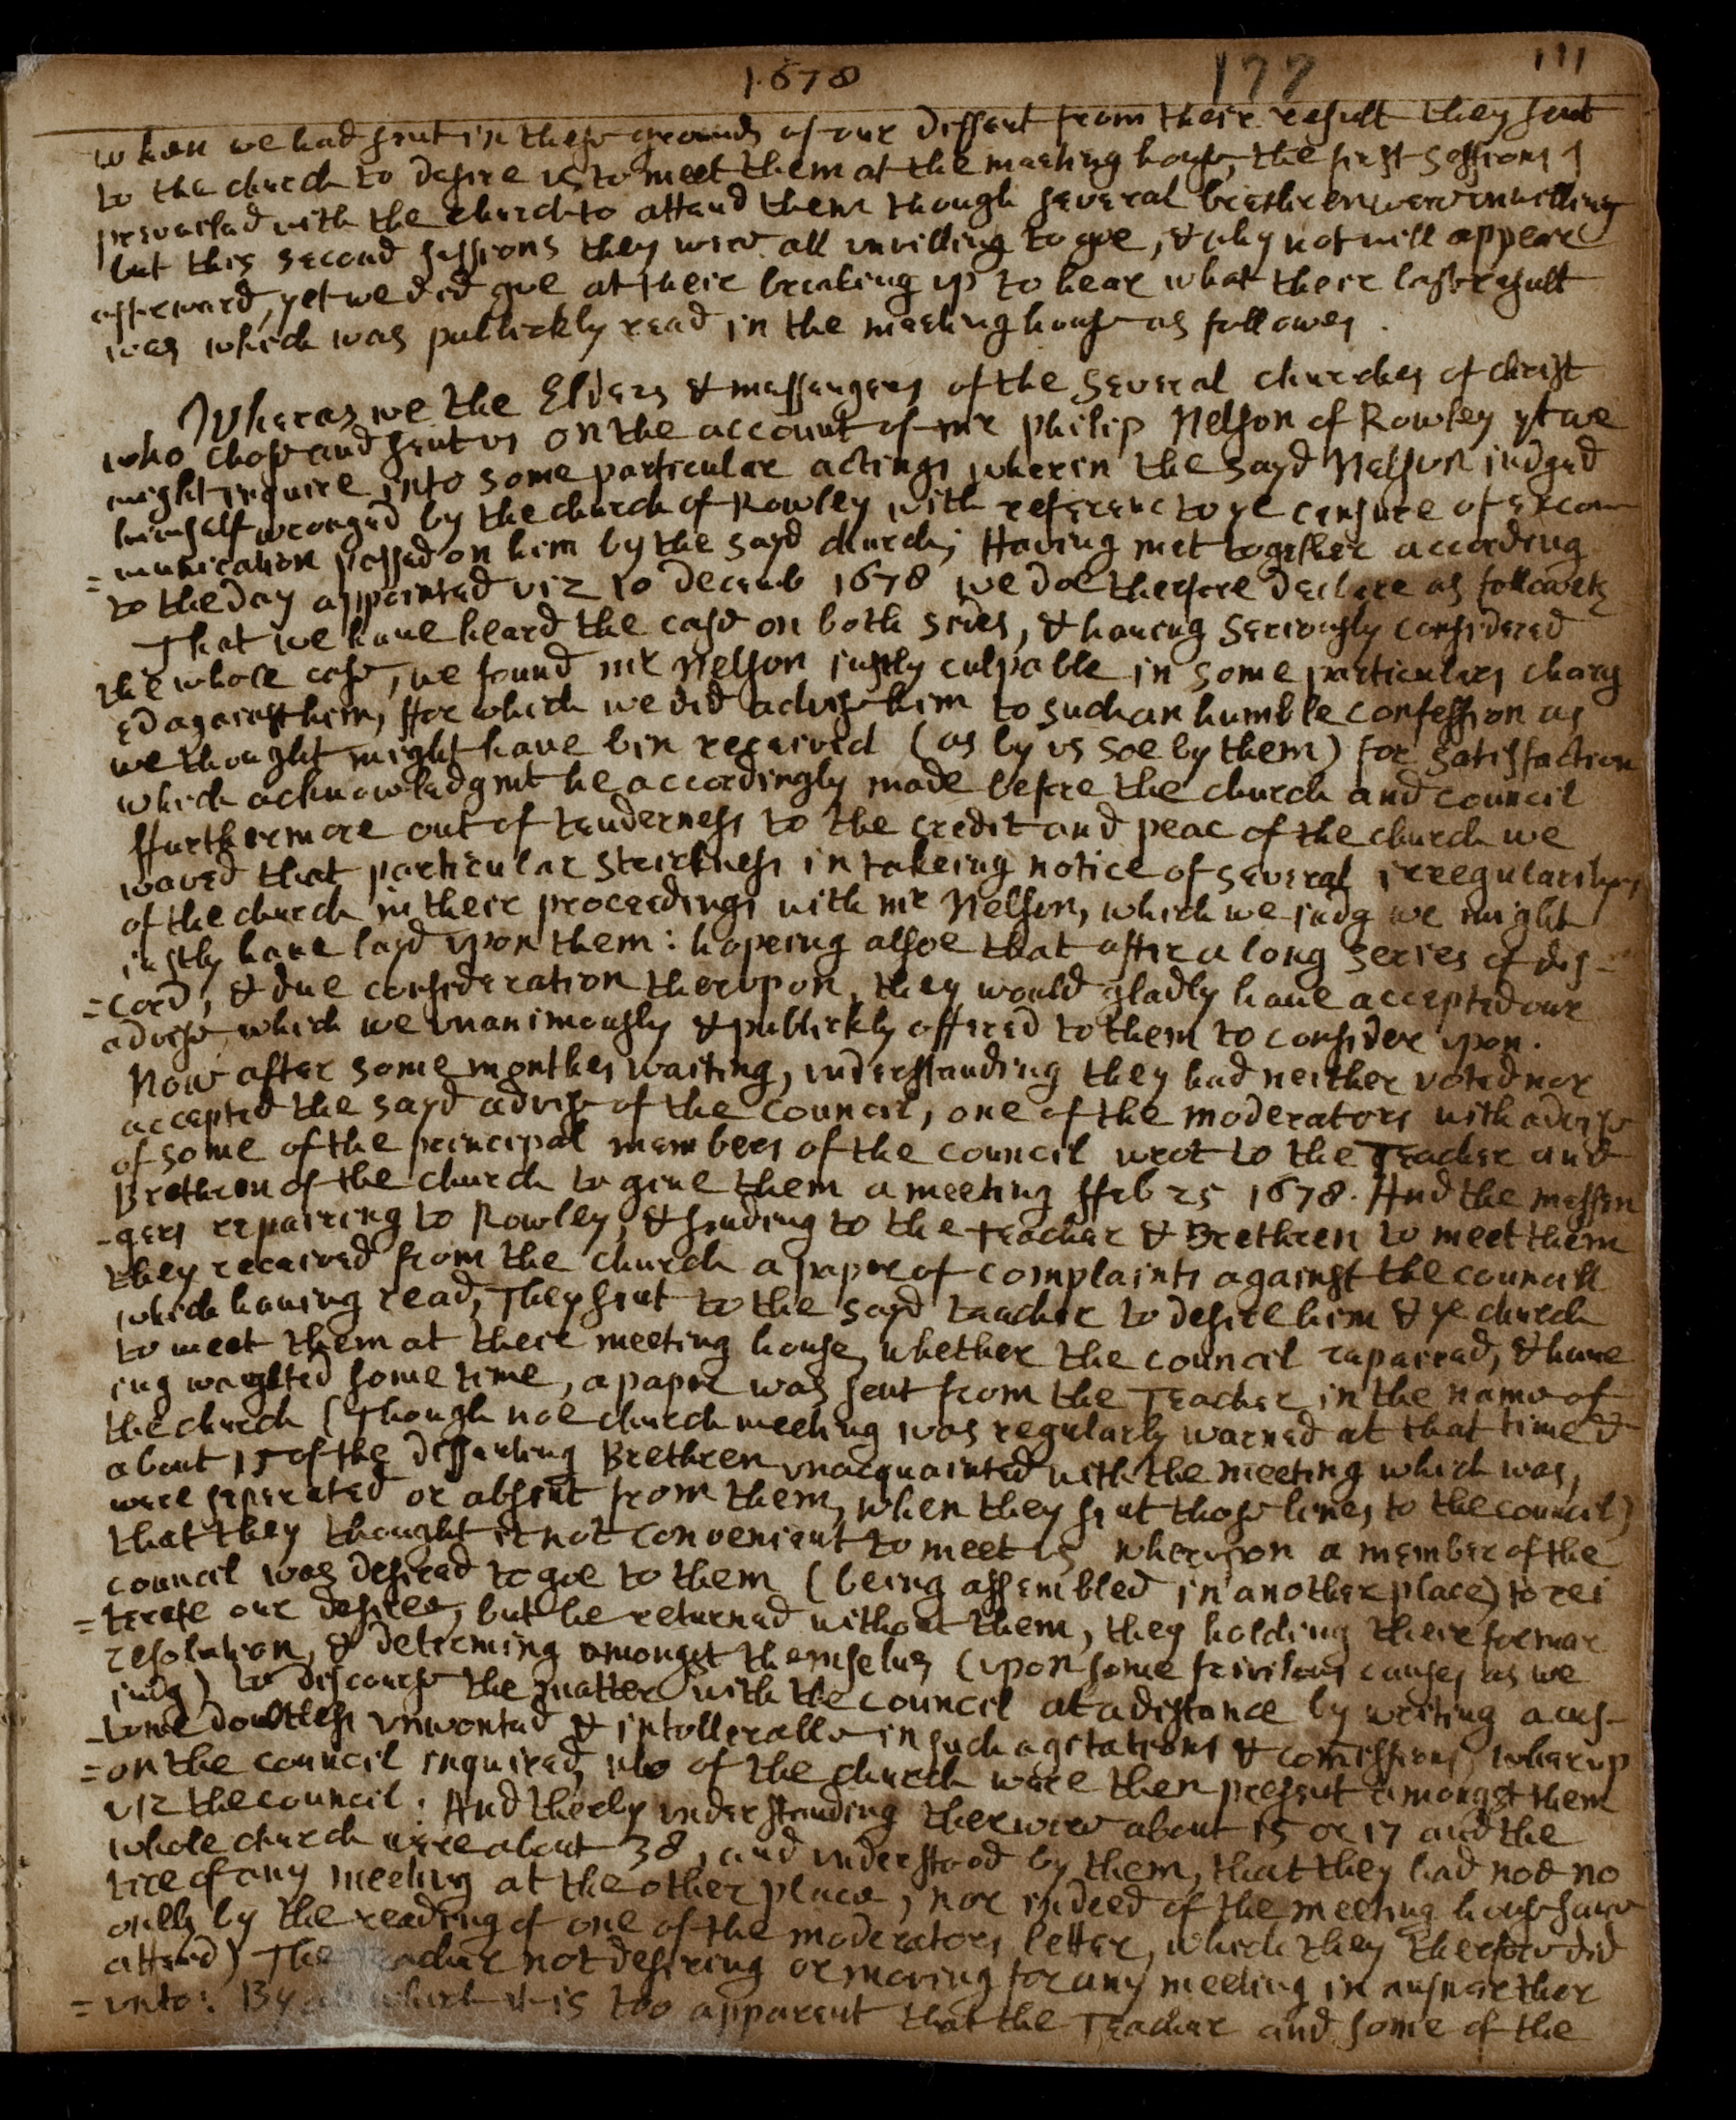 1678 177 111
when we had sent in these grounds of our dissent from their result they sent
to the church to desire us to meet them at the meeting house, the first sessions I
prevailed with the church to attend them though several brethren were unwilling
but this second sessions they were all unwilling to goe, & why not will appeare
afterward, yet we did goe at their breaking up to hear what their last result
was which was publickly read in the meeting house as followes.
Wheras we the Elders & messengers of the several churches of christ
who chose and sent us on the account of mr philip Nelson of Rowley yt we
might inquire into some particular actings wherin the sayd Nelson iudged
himself wronged by the church of Rowley with referenc to ye censure of excom
=munication passed on him by the sayd church; Having met together according
to the day appointed viz 10 decemb 1678 we doe therfore declare as followeth
That we have heard the case on both sides, & having seriously considered
the whole case, we found mr Nelson justly culpable in some particulars charg
ed against him, ffor which we did advise him to such an humble confession as
we thought might have bin received (as by us soe by them) for satisfaction
which acknowledgmt he accordingly made before the church and council
ffurthermore out of tenderness to the credit and peac of the church we
waved that particular strickness in takeing notice of several irregularityes
of the church in their proceedings with mr Nelson, which we judg we might
justly have layd upon them: hopeing alsoe that after a long series of dis-
=cord, & due consideration therupon, they would gladly have accepted our
advise which we unanimously & publickly offered to them to consider upon.
Now after some monthes waiting, understanding they had neither voted nor
accepted the sayd advise of the Council, one of the moderators with advise
of some of the principal members of the council wrot to the Teacher and
Brethren of the church to give them a meeting ffeb 25 1678. And the messen
-gers repairing to Rowley, & sending to the Teacher & Brethren to meet them
they received from the church a paper of complaints against the councill
which having read, They sent to the sayd teacher to desire him & ye church
to meet them at their meeting house, whether the council repaired, & have
ing wayted some time, a paper was sent from the Teacher in the name of
the church (Though noe church meeting was regularly warned at that time &
about 15 of the dissenting Brethren unacquainted with the meeting which was,
were seperated or absent from them, when they sent those lines to the council)
that they thought it not convenient to meet us wherupon a member of the
council was desired to goe to them (being assembled in another place) to rei
=terate our desires, but he returned without them, they holding their formar
resolution, & determing amongst themselves (upon some frivilous causes as we
judg) to discourse the matter with the council at a distance by writing a cus-
-tome doubtless unwonted & intollerable in such agitations & comissions, wherup
=on the council inquired, who of the church were then present amongst them
viz the council. And therby understanding ther were about 15 or 17 and the
whole church were about 38, and understood by them, that they had not no
tice of any meeting at the other place, nor indeed of the meeting house save
onely by the reading of one of the moderators letter, which they therfore did
attend) The Teacher not desiring or moving for any meeting in answer ther
=unto: By all which it is too apparent that the Teacher and some of the